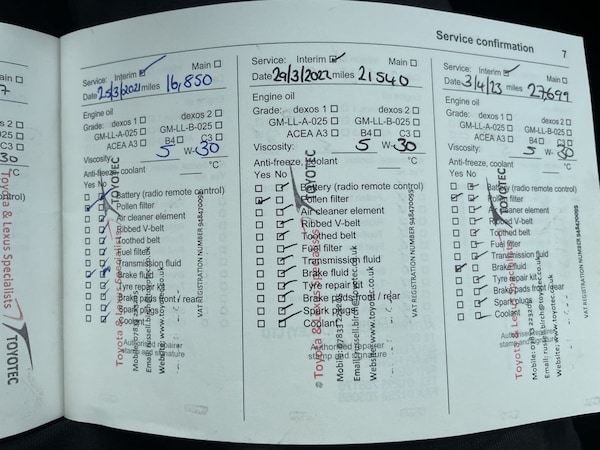 Service confirmation 7
Service: Interim Main
Date 25/3/2021 miles 16,850
Engine oil
Grade: dexos 1 dexos 2
GM-LL-A-025 GM-LL-B-025
ACEA A3 B4 C3
Viscosity: 5 W-30
Anti-freeze, coolant °C
Yes No
Battery (radio remote control)
Pollen filter
Air cleaner element
Ribbed V-belt
Toothed belt
Fuel filter
Transmission fluid
Brake fluid
Tyre repair kit
Brake pads front / rear
Spark plugs
Coolant
Authorised repairer
stamp and signature
TOYOTEC
Toyota & Lexus Specialists
VAT REGISTRATION NUMBER
Service: Interim Main
Date 29/3/2022 miles 21540
Engine oil
Grade: dexos 1 dexos 2
GM-LL-A-025 GM-LL-B-025
ACEA A3 B4 C3
Viscosity: 5 W-30
Anti-freeze, coolant °C
Yes No
Battery (radio remote control)
Pollen filter
Air cleaner element
Ribbed V-belt
Toothed belt
Fuel filter
Transmission fluid
Brake fluid
Tyre repair kit
Brake pads front / rear
Spark plugs
Coolant
Authorised repairer
stamp and signature
Toyota & Lexus Specialists
Website: www.toyotec.co.uk
VAT REGISTRATION NUMBER
Service: Interim Main
Date 3/4/23 miles 27,699
Engine oil
Grade: dexos 1 dexos 2
GM-LL-A-025 GM-LL-B-025
ACEA A3 B4 C3
Viscosity: 5 W-30
Anti-freeze, coolant °C
Yes No
Battery (radio remote control)
Pollen filter
Air cleaner element
Ribbed V-belt
Toothed belt
Fuel filter
Transmission fluid
Brake fluid
Tyre repair kit
Brake pads front / rear
Spark plugs
Coolant
TOYOTEC
Toyota & Lexus Specialists
Website: www.toyotec.co.uk
VAT REGISTRATION NUMBER
Toyota & Lexus Specialists
TOYOTEC